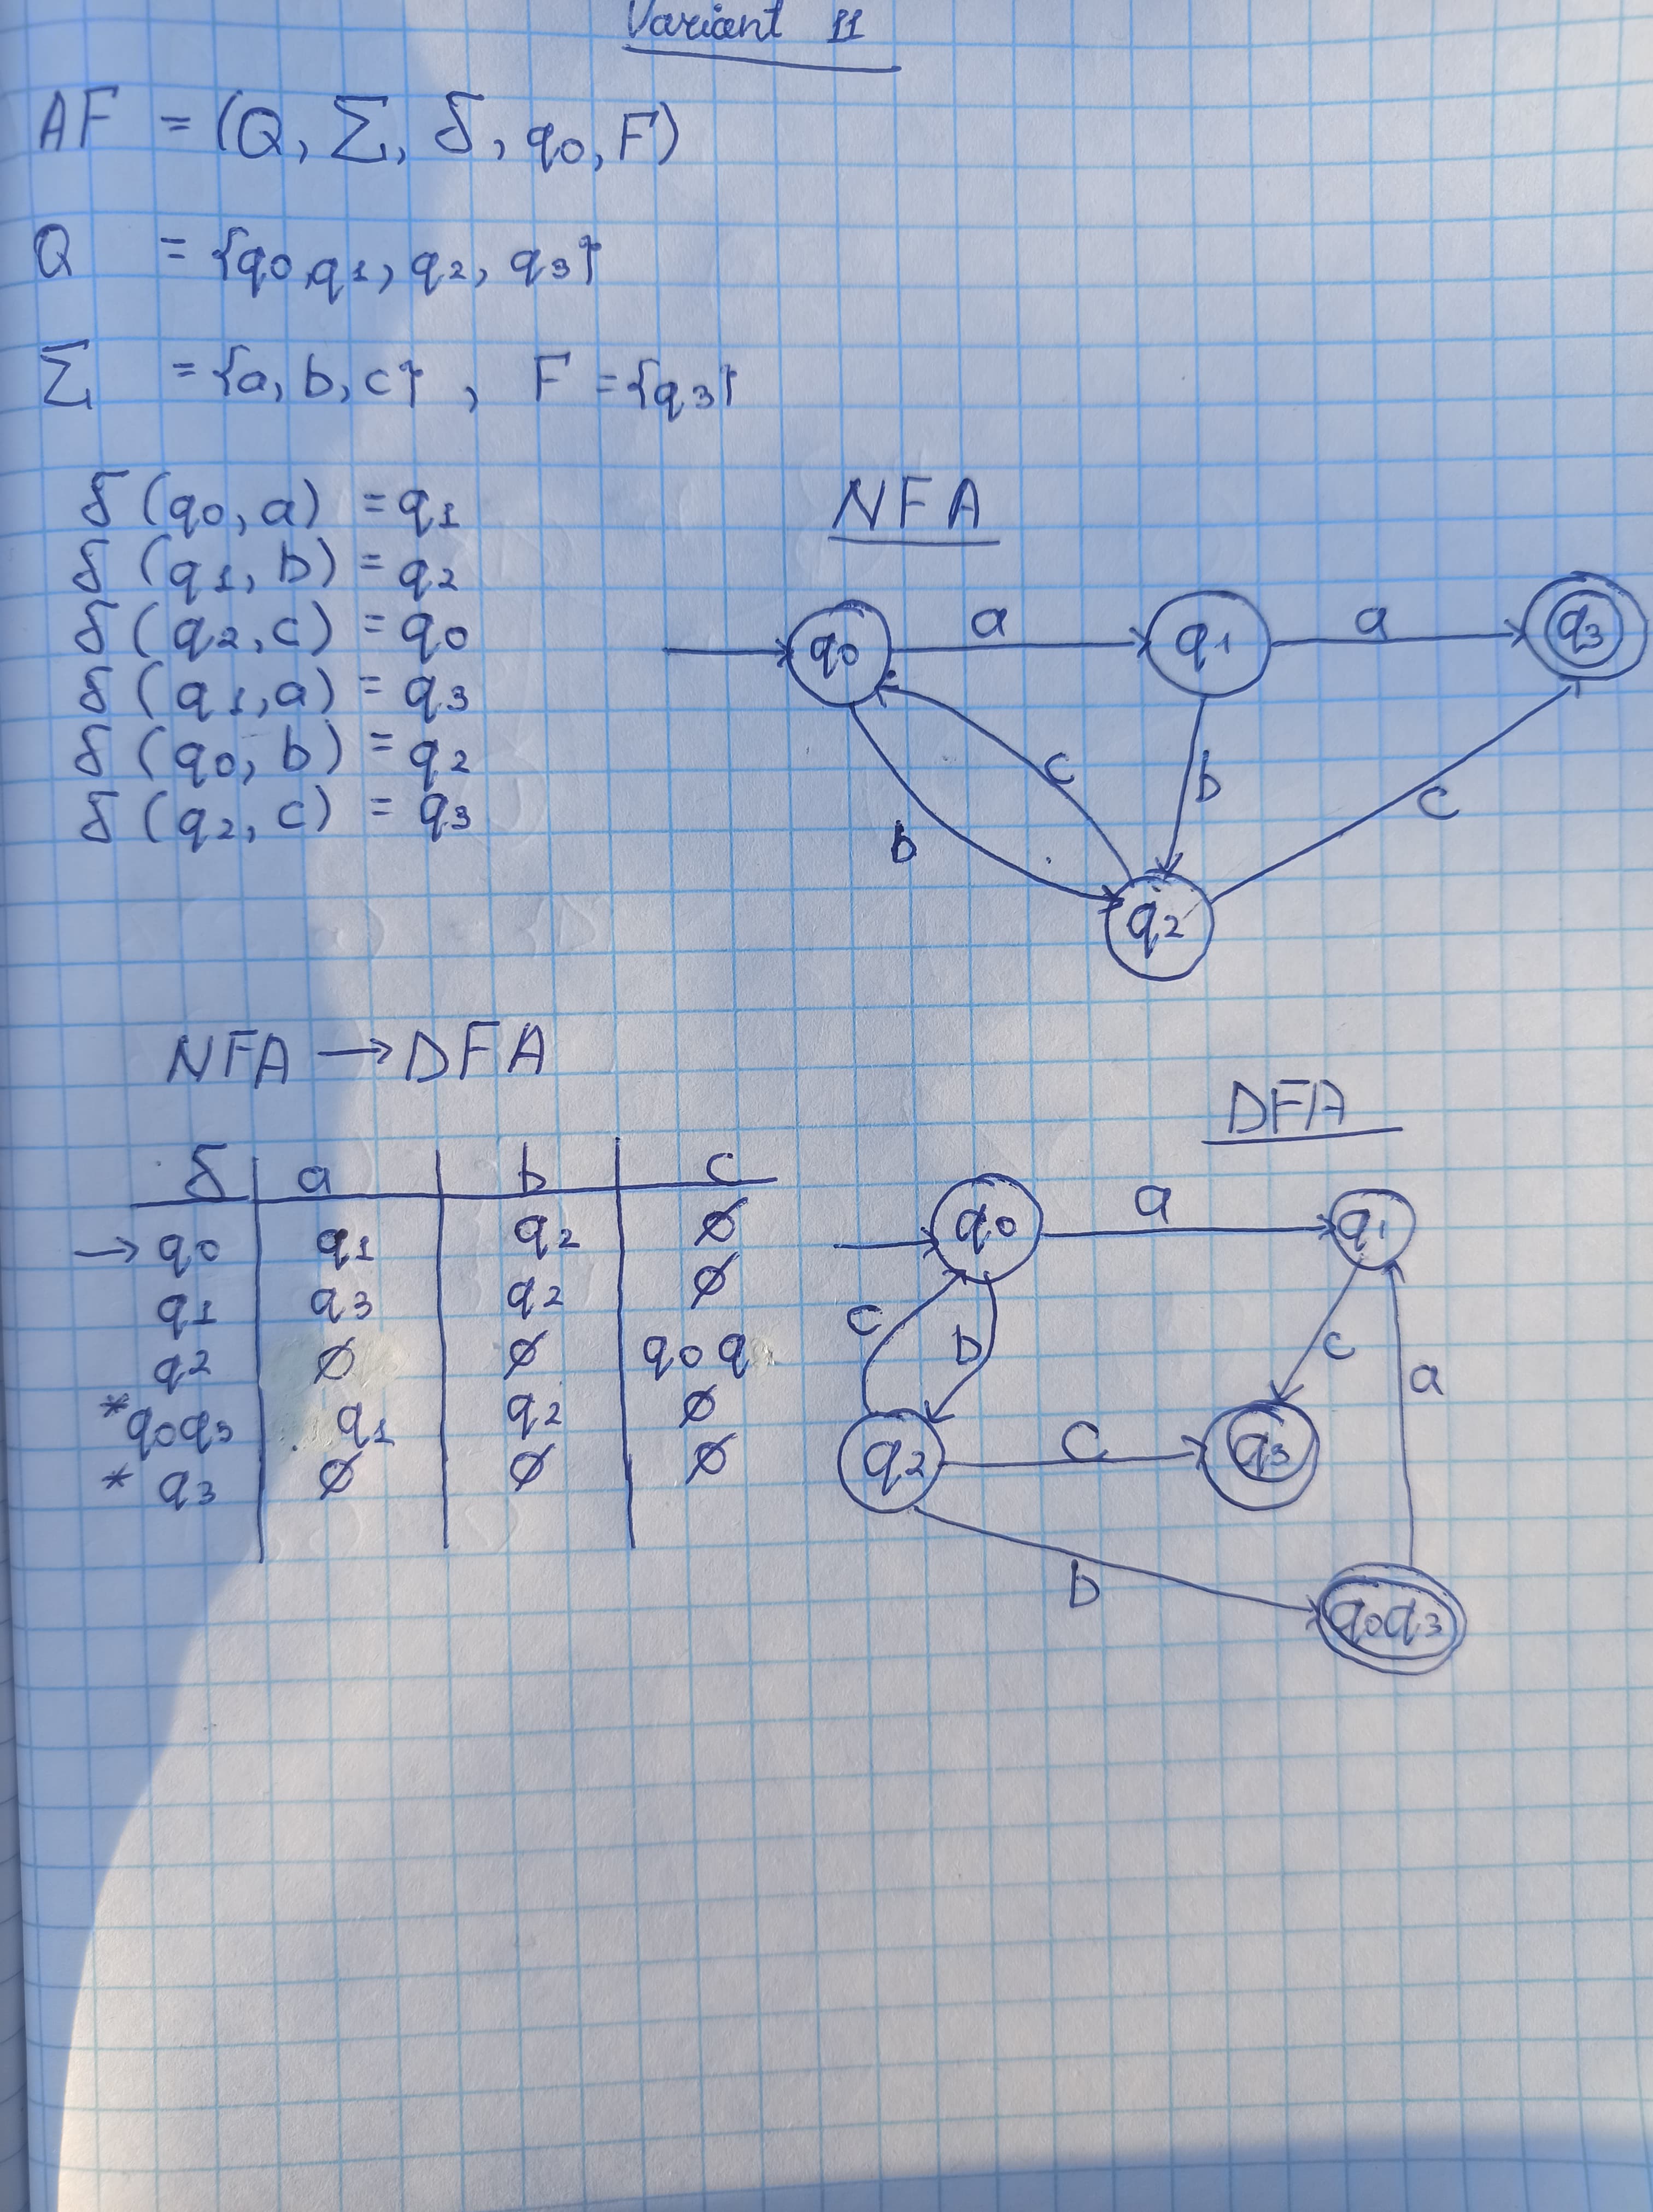 Variant 11
AF = (Q, Σ, δ, q0, F)
Q = {q0, q1, q2, q3}
Σ = {a, b, c} , F = {q3}
δ (q0, a) = q1
δ (q1, b) = q2
δ (q2, c) = q0
δ (q1, a) = q3
δ (q0, b) = q2
δ (q2, c) = q3
NFA
q0 a q1 a q3
c b c
b
q2
NFA → DFA
δ a b c
→ q0 q1 q2 ∅
q1 q3 q2 ∅
q2 ∅ ∅ q0 q
* q0q3 q1 q2 ∅
* q3 ∅ ∅ ∅
DFA
q0 a q1
c b c a
q2 c q3
b
q0q3